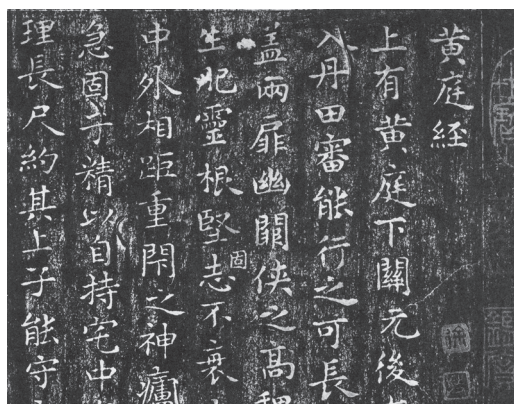 黄庭經
上有黄庭下關元後
入丹田審能行之可長
盖兩扉幽關俠之高
生肥靈根堅固志不衰
中外相距重閇之神廬
急固子精以自持宅中
理長尺約其上子能守